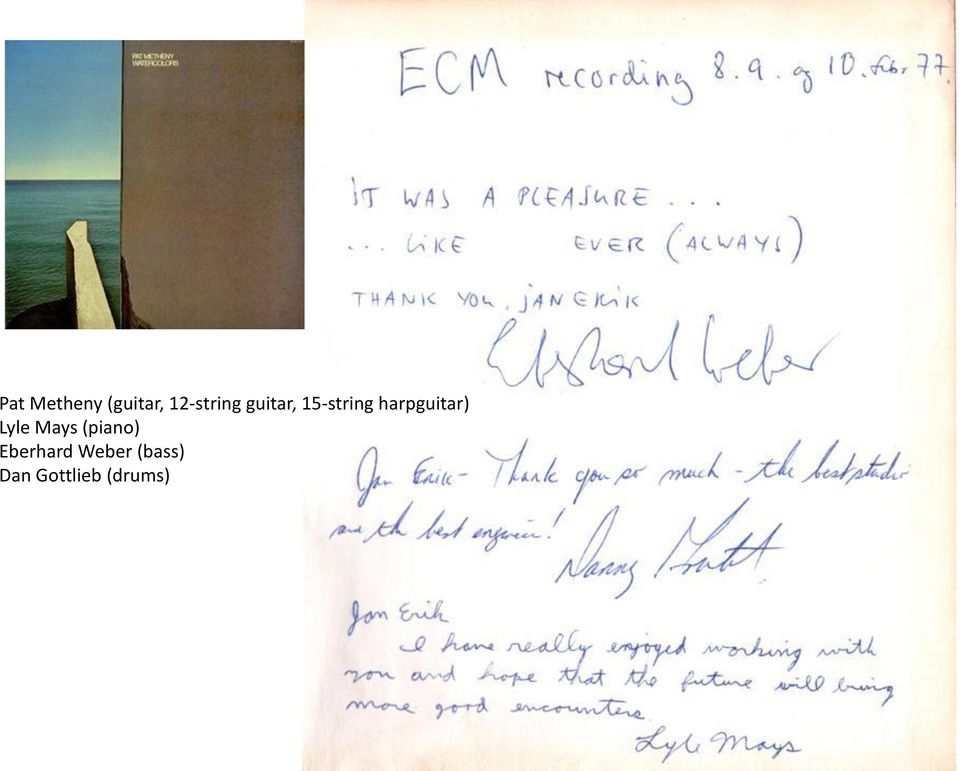 PAT METHENY
WATERCOLORS
ECM recording 8. 9. og 10. febr 77.
IT WAS A PLEASURE . . .
. . . LIKE EVER (ALWAYS)
THANK YOU, JAN ERIK
Eberhard Weber
Pat Metheny (guitar, 12-string guitar, 15-string harpguitar)
Lyle Mays (piano)
Eberhard Weber (bass)
Dan Gottlieb (drums)
Jan Erik - Thank you so much - the best studio
and the best engineer!
Danny Gottlieb
Jan Erik
I have really enjoyed working with
you and hope that the future will bring
more good encounters.
Lyle Mays